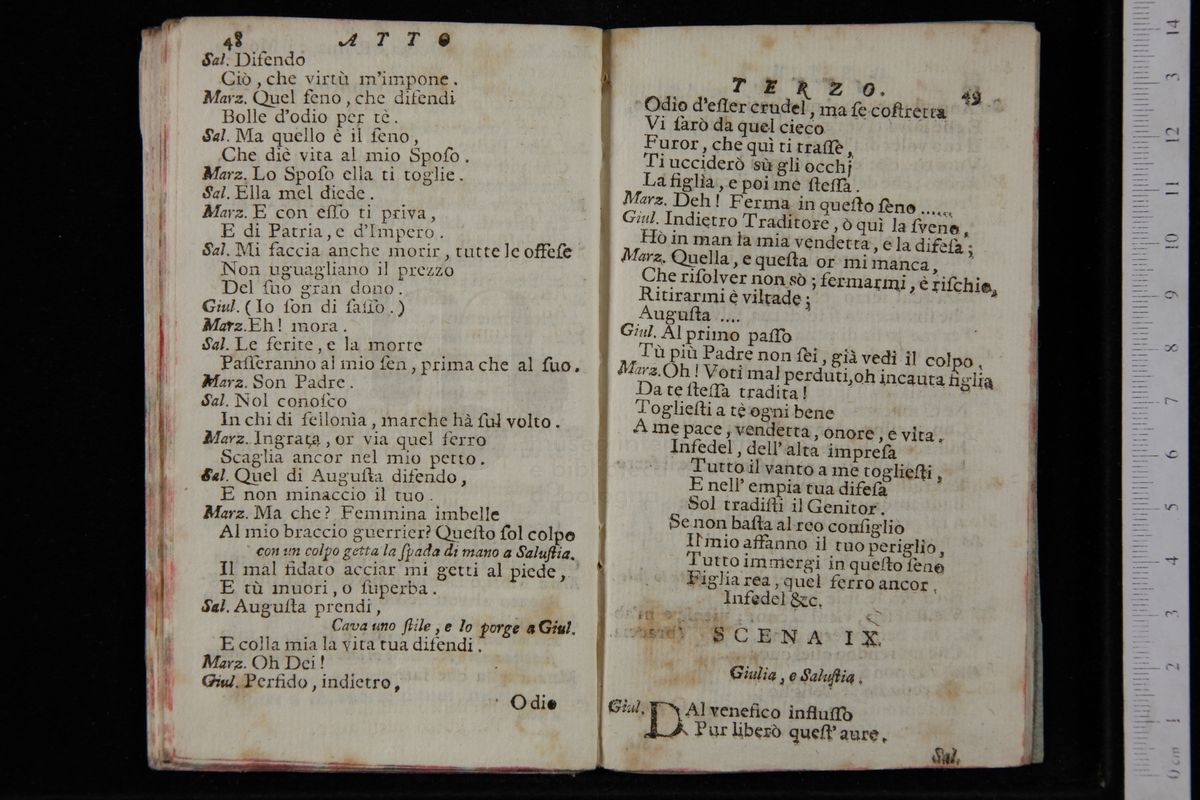 48 ATTO
Sal. Difendo
Ciò, che virtù m'impone.
Marz. Quel ſeno, che difendi
Bolle d'odio per tè.
Sal. Ma quello è il ſeno,
Che diè vita al mio Spoſo.
Marz. Lo Spoſo ella ti toglie.
Sal. Ella mel diede.
Marz. E con eſſo ti priva,
E di Patria, e d'Impero.
Sal. Mi faccia anche morir, tutte le offeſe
Non uguagliano il prezzo
Del ſuo gran dono.
Giul. (Io ſon di ſaſſo.)
Marz. Eh! mora.
Sal. Le ferite, e la morte
Paſſeranno al mio ſen, prima che al ſuo.
Marz. Son Padre.
Sal. Nol conoſco
In chi di fellonìa, marche hà ſul volto.
Marz. Ingrata, or via quel ferro
Scaglia ancor nel mio petto.
Sal. Quel di Auguſta difendo,
E non minaccio il tuo.
Marz. Ma che? Femmina imbelle
Al mio braccio guerrier? Queſto ſol colpo
con un colpo getta la ſpada di mano a Saluſtia.
Il mal fidato acciar mi getti al piede,
E tù muori, o ſuperba.
Sal. Auguſta prendi,
Cava uno ſtile, e lo porge a Giul.
E colla mia la vita tua difendi.
Marz. Oh Dei!
Giul. Perfido, indietro,
Odio
TERZO. 49
Odio d'eſſer crudel, ma ſe coſtretta
Vi ſarò da quel cieco
Furor, che quì ti traſſe,
Ti ucciderò sù gli occhi
La figlia, e poi me ſteſſa.
Marz. Deh! Ferma in queſto ſeno ......
Giul. Indietro Traditore, ò quì la ſveno,
Hò in man la mia vendetta, e la difeſa;
Marz. Quella, e queſta or mi manca,
Che riſolver non sò; fermarmi, è riſchio,
Ritirarmi è viltade;
Auguſta ....
Giul. Al primo paſſo
Tù più Padre non ſei, già vedi il colpo.
Marz. Oh! Voti mal perduti, oh incauta figlia
Da te ſteſſa tradita!
Toglieſti a tè ogni bene
A me pace, vendetta, onore, e vita.
Infedel, dell' alta impreſa
Tutto il vanto a me toglieſti,
E nell' empia tua difeſa
Sol tradiſti il Genitor.
Se non baſta al reo conſiglio
Il mio affanno il tuo periglio,
Tutto immergi in queſto ſeno
Figlia rea, quel ferro ancor.
Infedel &c.
SCENA IX.
Giulia, e Saluſtia.
Giul. DAl venefico influſſo
Pur liberò queſt' aure.
Sal.